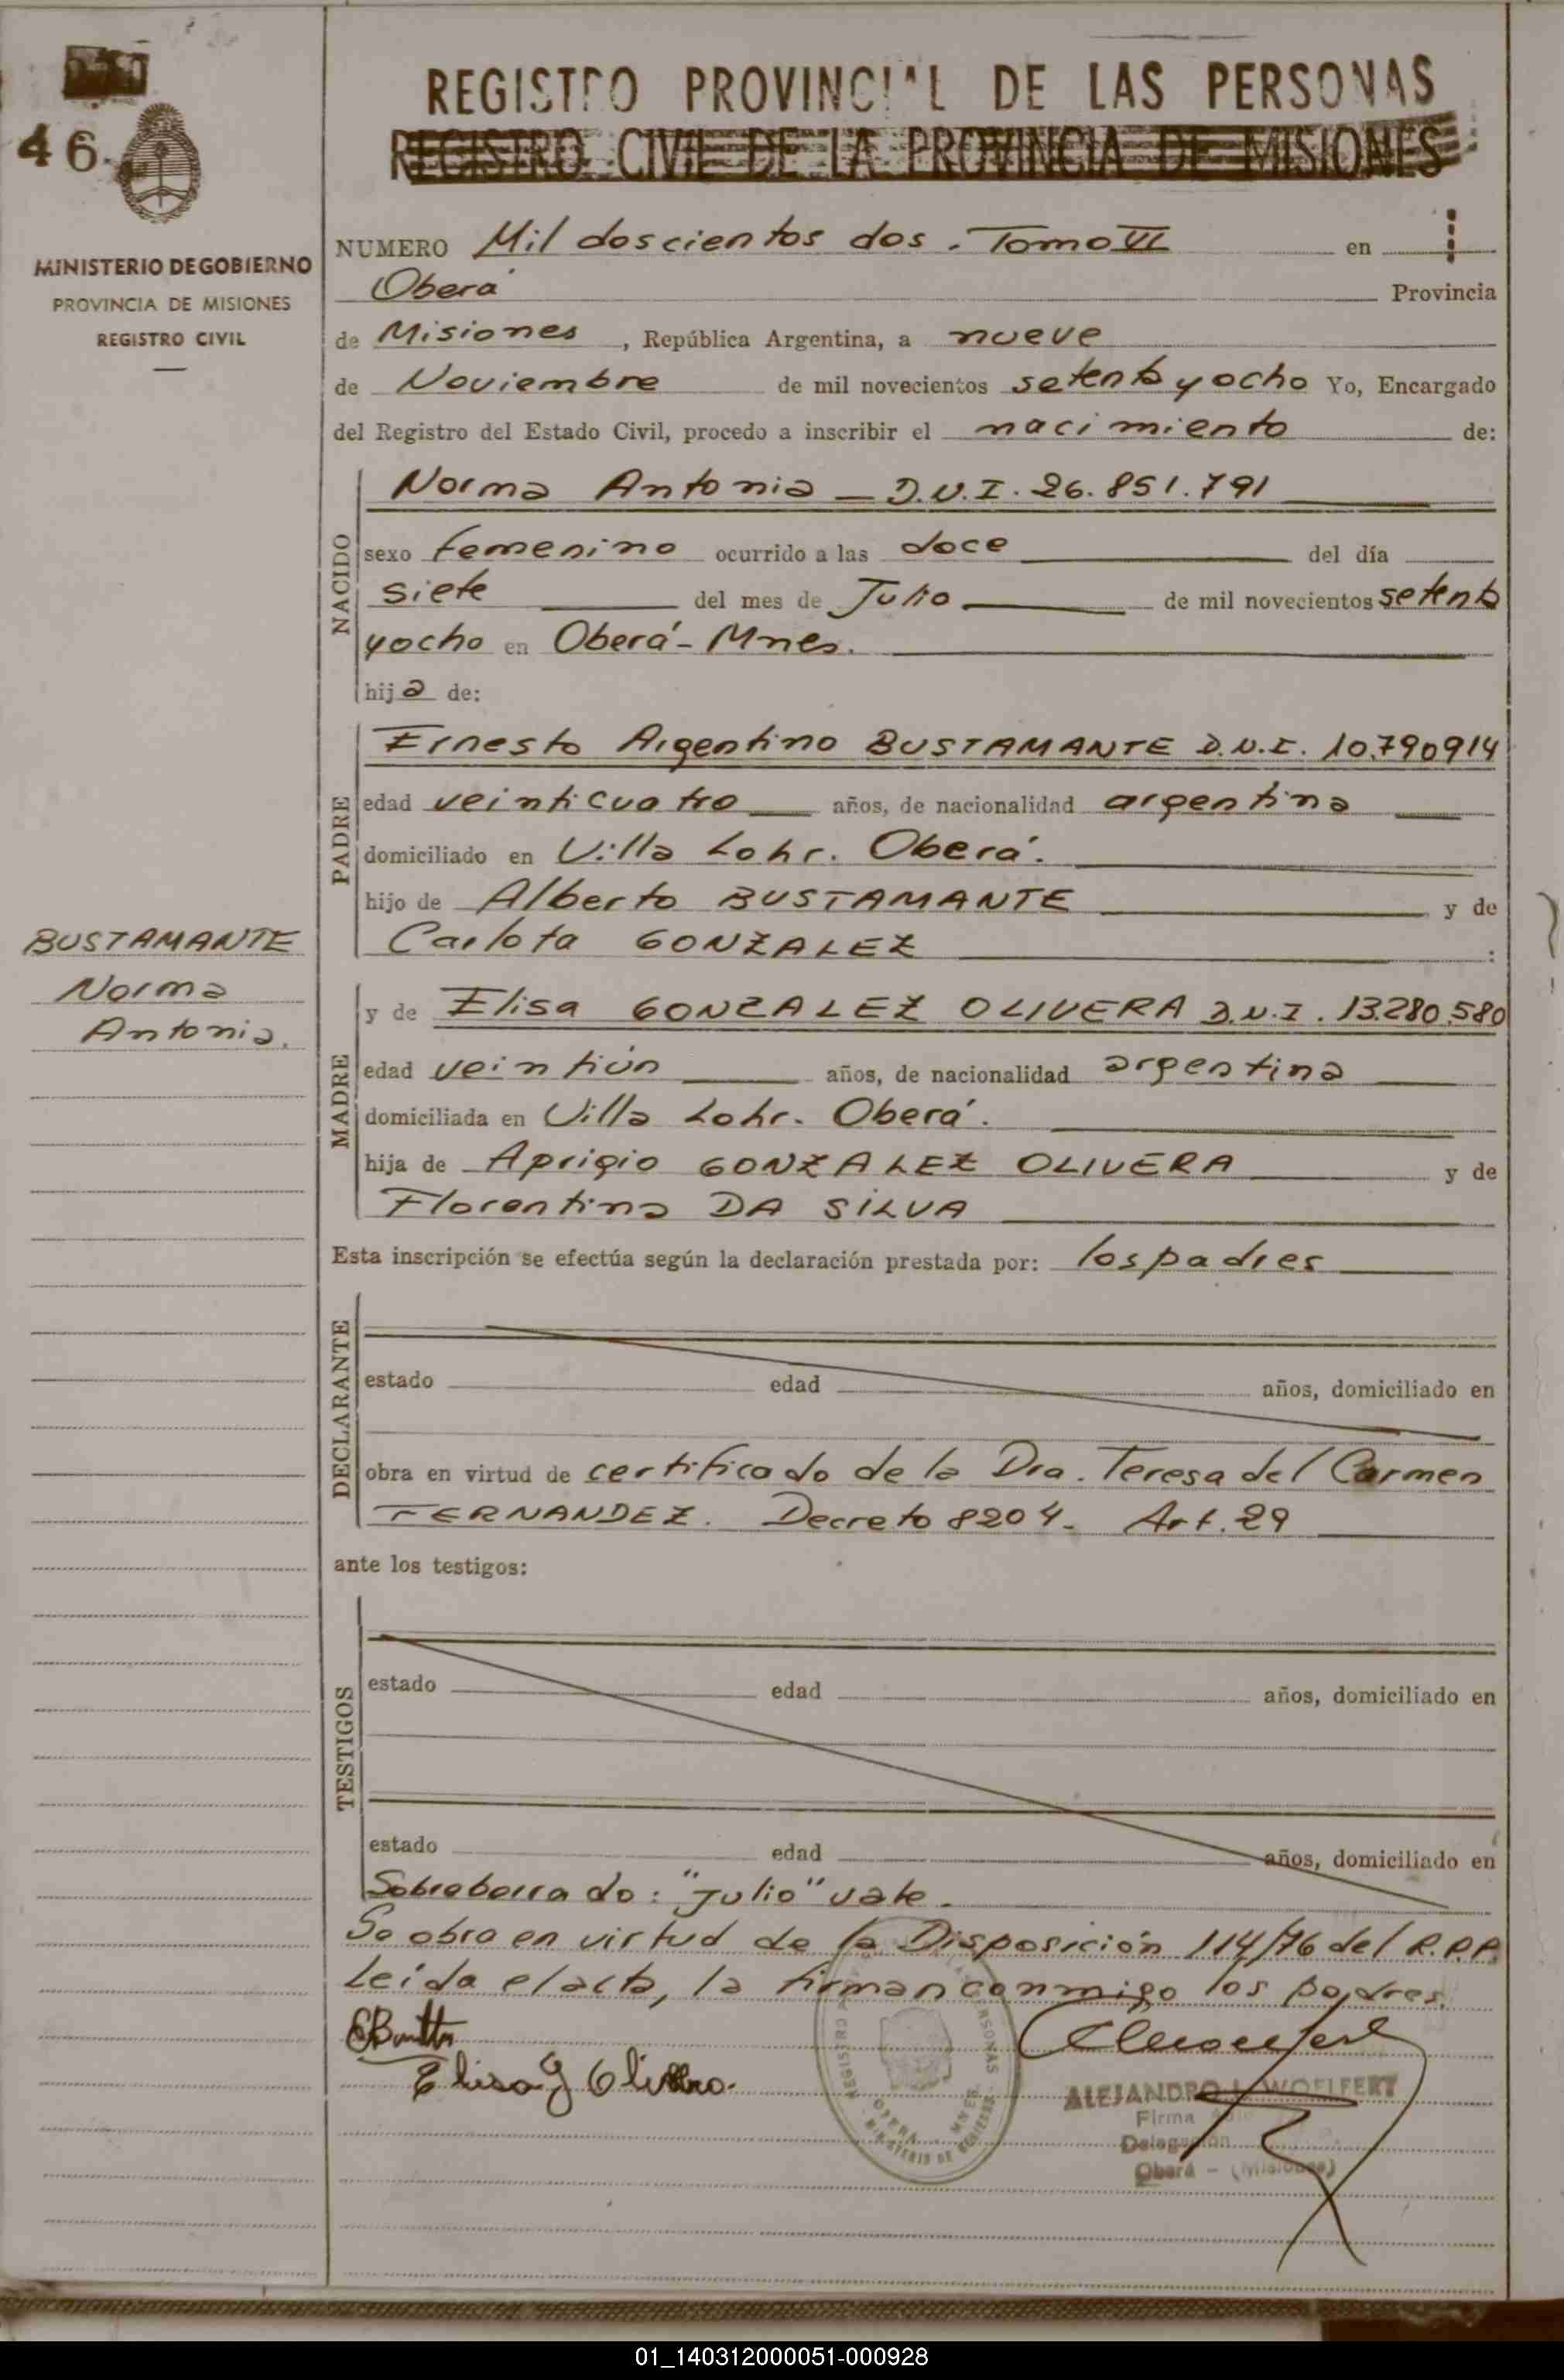 46
MINISTERIO DE GOBIERNO
PROVINCIA DE MISIONES
REGISTRO CIVIL
BUSTAMANTE
Norma
Antonia.
REGISTRO PROVINCIAL DE LAS PERSONAS
REGISTRO CIVIL DE LA PROVINCIA DE MISIONES
NUMERO Mil doscientos dos. Tomo VI en
Oberá Provincia
de Misiones, República Argentina, a nueve
de Noviembre de mil novecientos setenta y ocho Yo, Encargado
del Registro del Estado Civil, procedo a inscribir el nacimiento de:
NACIDO
Norma Antonia - D.N.I. 26.851.791
sexo femenino ocurrido a las doce del día
siete del mes de Julio de mil novecientos setenta
y ocho en Oberá - Mnes.
hija de:
PADRE
Ernesto Argentino BUSTAMANTE D.N.I. 10.790914
edad veinticuatro años, de nacionalidad argentina
domiciliado en Villa Lohr. Oberá.
hijo de Alberto BUSTAMANTE y de
Carlota GONZALEZ :
MADRE
y de Elisa GONZALEZ OLIVERA D.N.I. 13.280.580
edad veintiún años, de nacionalidad argentina
domiciliada en Villa Lohr. Oberá.
hija de Aprigio GONZALEZ OLIVERA y de
Florentina DA SILVA
Esta inscripción se efectúa según la declaración prestada por: los padres
DECLARANTE
estado edad años, domiciliado en
obra en virtud de certificado de la Dra. Teresa del Carmen
FERNANDEZ. Decreto 8204. Art. 29
ante los testigos:
TESTIGOS
estado edad años, domiciliado en
estado edad años, domiciliado en
Sobreborrado: "Julio" vale.
Se obra en virtud de la Disposición 114/76 del R.P.P.
Leída el acta, la firman conmigo los padres.
Elisa G Olivera.
ALEJANDRO L. WOELFERT
Firma
Delegación
Oberá - (Misiones)
01_140312000051-000928